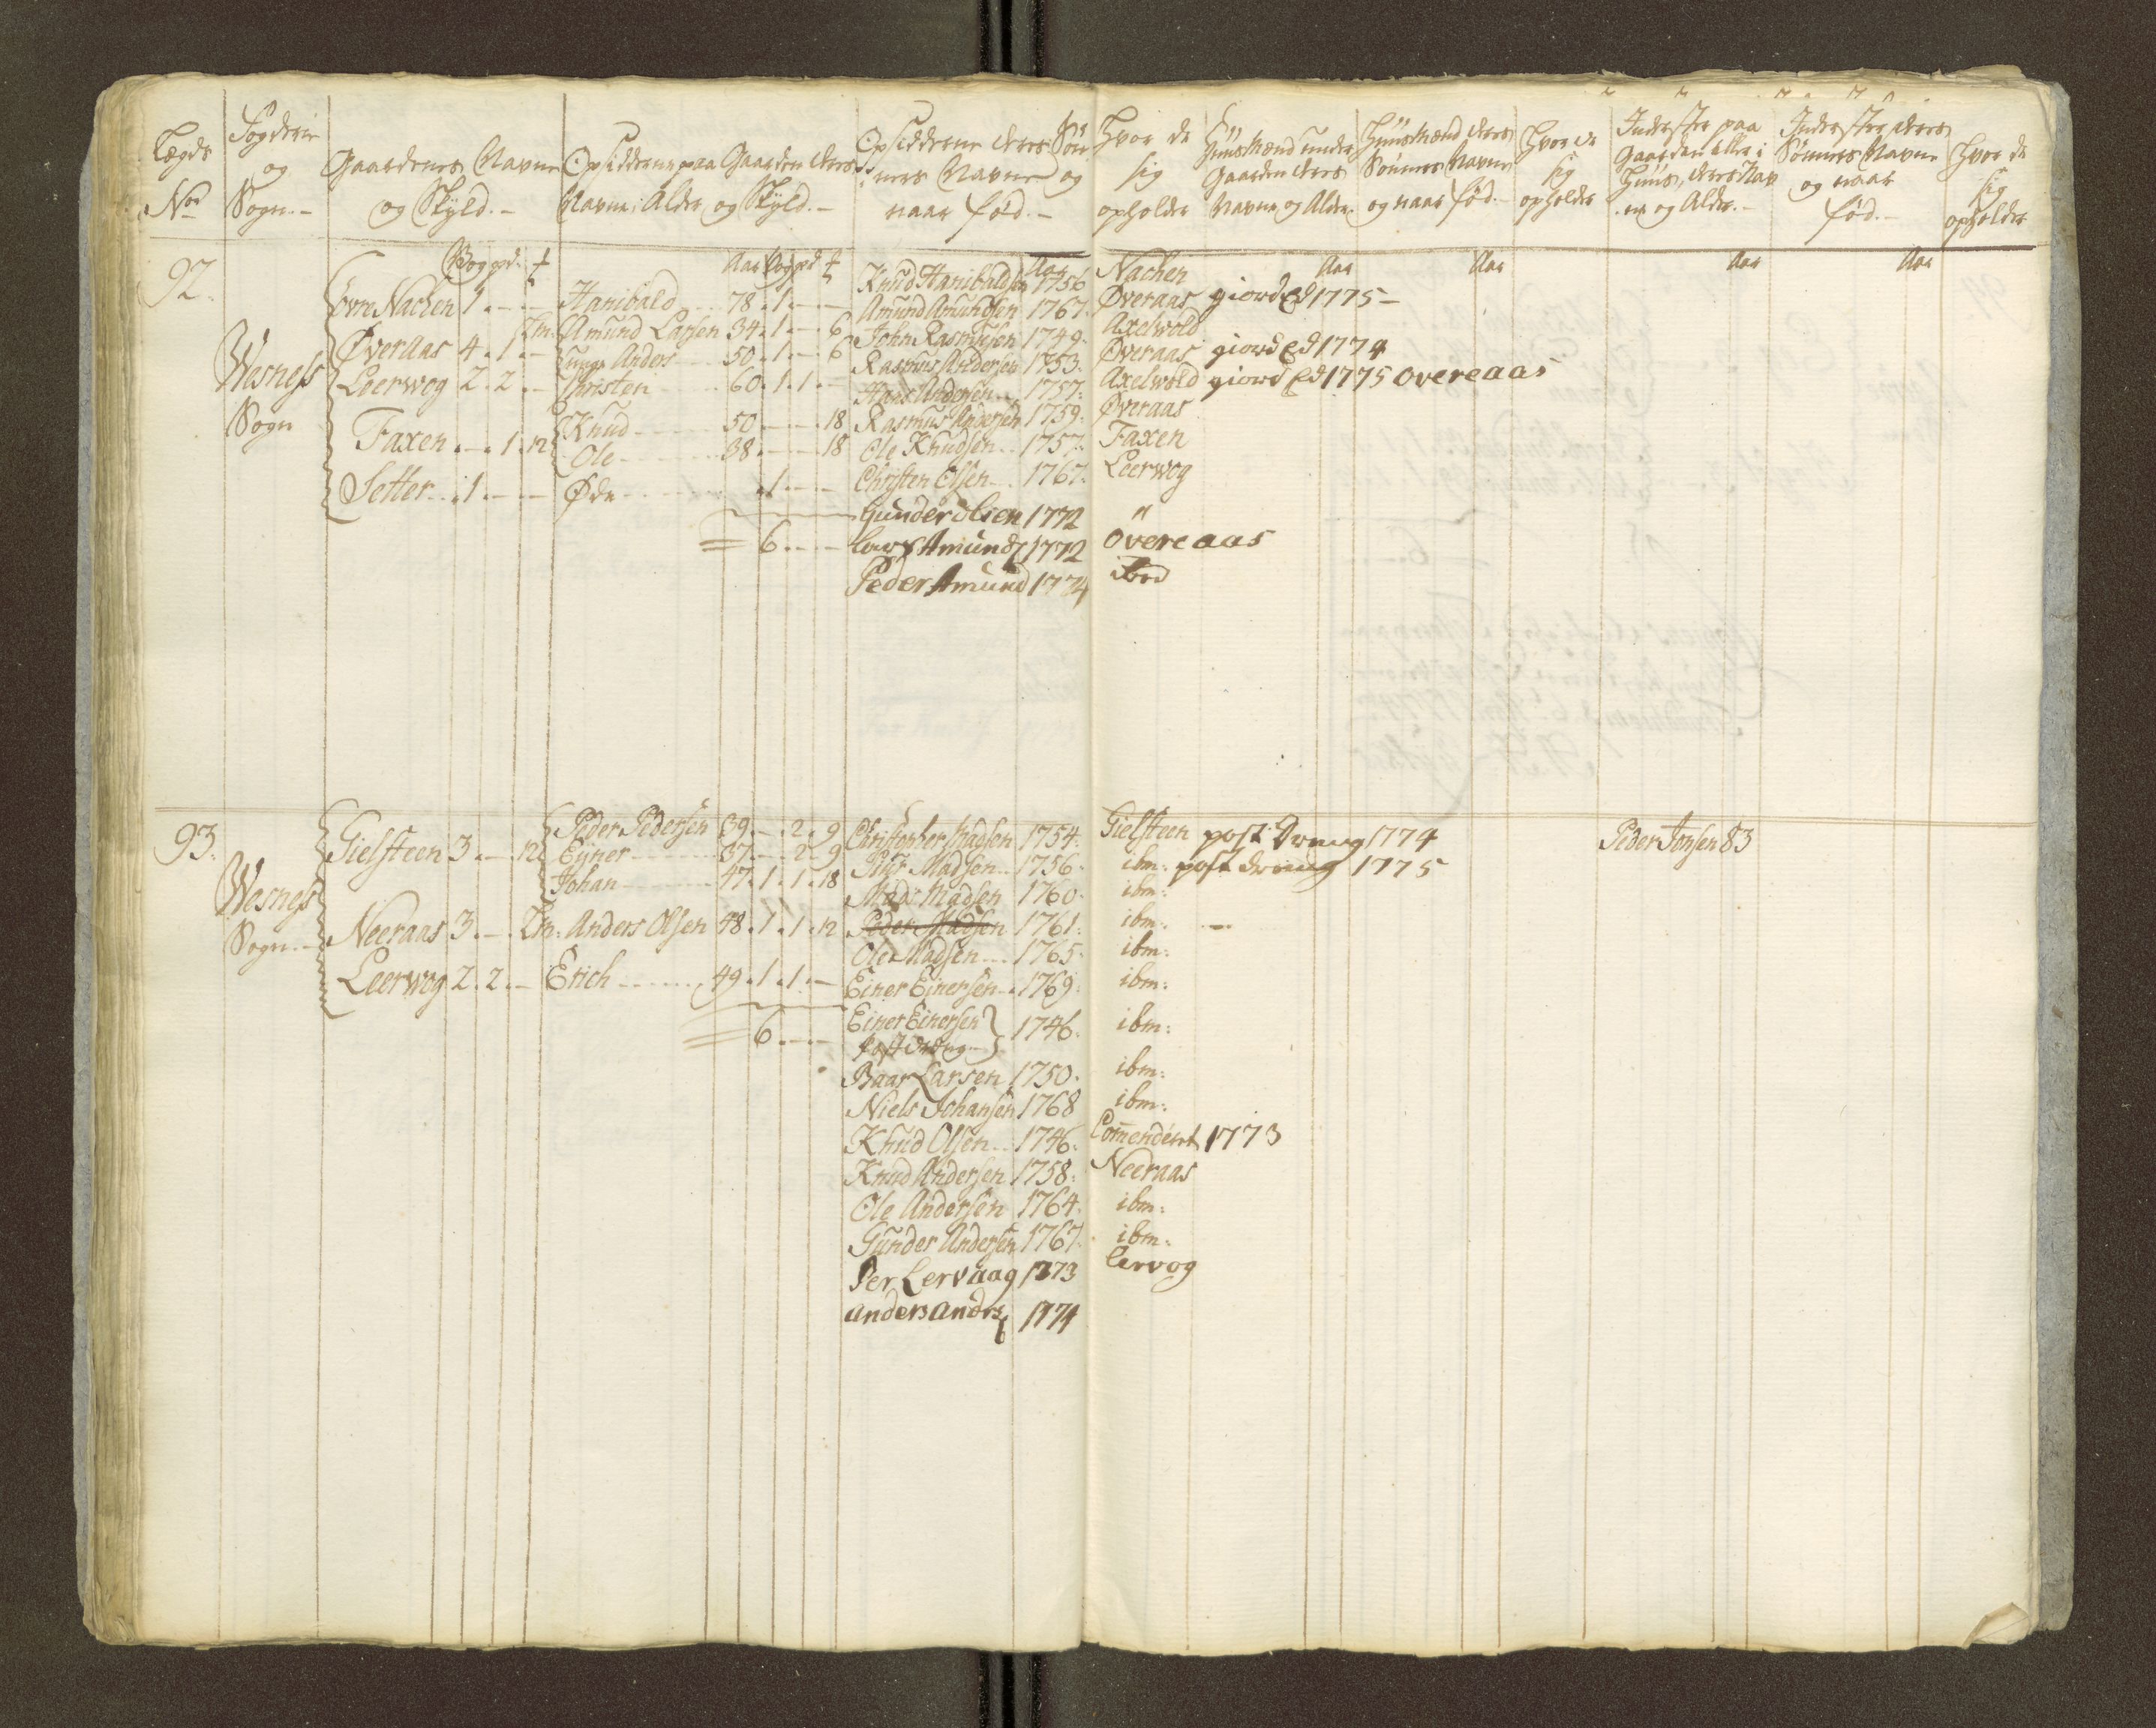 Lægds
No
Fogderie
og
Sogn.-
Gaardenes Navne
og Skyld.-
Opsidderne paa Gaarden deres
Navne, Alder og Skyld.-
Opsidderne deres Søn
ners Navne og
naar fød.-
Hvor de
sig
opholder
Huusmænd under
Gaarden deres
Navne og Alder.
Huusmænd deres
Sønners Navne
og naar fød.-
Hvor de
sig
opholder
Inderster paa
Gaarden eller i
Huus, deres Nav
ne og Alder.-
Inderster deres
Sønners Navne
og naar
fød.-
Hvor de
sig
opholder
92.
Wesness
Sogn
Øvre Nachen 1.--
Øveraas 4.1.-
Leerwog 2.2.-
Faxen.-.1.12
Setter..1.--
Aar
Hanibald 78.1.--
Amund Larsen 34.1.-.6
Anders 50.1.-.6
Christen 60.1.1.-
Knud 50.-.-.18
Ole 38.-.-.18
Øde .1.--
= 6.--
Aar
Knud Hanibaldsen 1756 Nachen
Amund Amundsen 1767. Øveraas giord Ed 1775-
John Rasmusen 1749. Axelwold
Rasmus Andersen 1753. Øveraas giord Ed 1774
Hans Andersen 1757. Axelwold giord Ed 1775 Overeaas
Rasmus Andersen 1759. Øveraas
Ole Knudsen 1757. Faxen
Christen Olsen 1767. Leerwog
Gunder olsen 1772 "
Lars Amunds 1772 Overeaas
Peder Amund 1774
Aar
Aar
Aar
Aar
93.
Wesness
Sogn.-
Gielsteen 3.-.12
Neeraas 3.-.
Leerwog 2.2.-
Peder Pedersen 39.-.2.9
Ejner 37.-.2.9
Johan 47.1.1.18
Anders Olsen 48.1.1.12
Erich 49.1.1.-
= 6.--
Christopher Madsen 1754. Gielsteen post Dreng 1774
Madsen 1756. ibm: post dreng 1775
Mads Madsen 1760. ibm:
Peder Madsen 1761: ibm:
Ole Madsen 1765. ibm:
Einer Einersen 1769: ibm:
Einer Einersen 1746. ibm:
Baar Larsen 1750. ibm:
Niels Johansen 1768 ibm:
Knud Olsen 1746. Comenderet 1773
Knud Andersen 1758: Neeraas
Ole Andersen 1764. ibm:
Gunder Andersen 1767. ibm:
Per Lervaag 1773 Lervog
anders anders 1774
Peder Jonsen 83